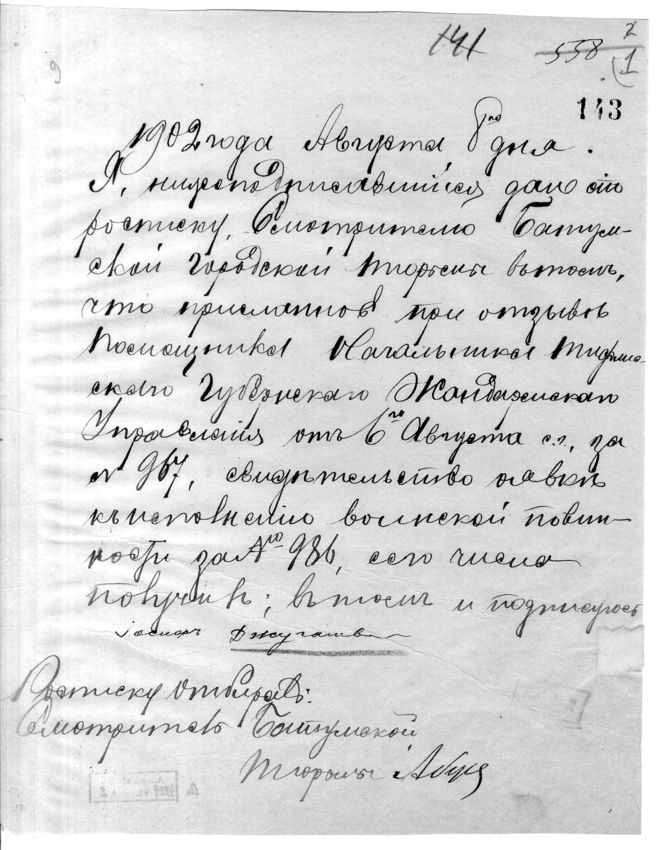 141
558
2
1
143
1902 года Августа 8го дня.
Я, нижеподписавшійся даю сію
росписку, Смотрителю Батум-
ской Городской тюрьмы вътомъ,
что присланное при отзывѣ
Помощника Начальника Тифлис-
скаго Губернскаго Жандармскаго
Управленія отъ 6го Августа с.г., за
№ 967, свидѣтельство оявкѣ
къисполненію воинской повин-
ности за № 986, сего числа
получилъ; вътомъ и подписуюсь
Іосифъ Джугашвили
Росписку отбиралъ:
Смотритель Батумской
тюрьмы